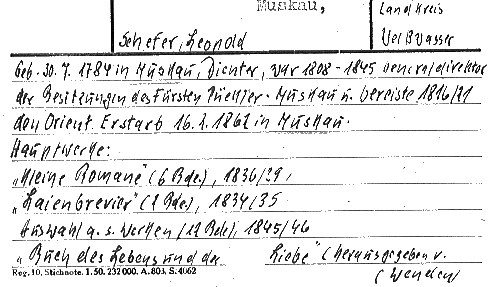 Muskau,
Landkreis
Weißwasser
Schefer, Leopold
Geb. 30. 7. 1784 in Muskau, Dichter, war 1808-1845 Generaldirektor
der Besitzungen des Fürsten Pueckler-Muskau u. bereiste 1816/21
den Orient. Er starb 16. 2. 1862 in Muskau.
Hauptwerke:
"Kleine Romane" (6 Bde), 1836/39,
"Laienbrevier" (2 Bde), 1834/35
Auswahl a. s. Werken (12 Bde), 1845/46
"Buch des Lebens und der Liebe" (herausgegeben v.
(Wenden
Reg. 10, Stichnote. 1. 50. 232 000. A. 803. S. 4062